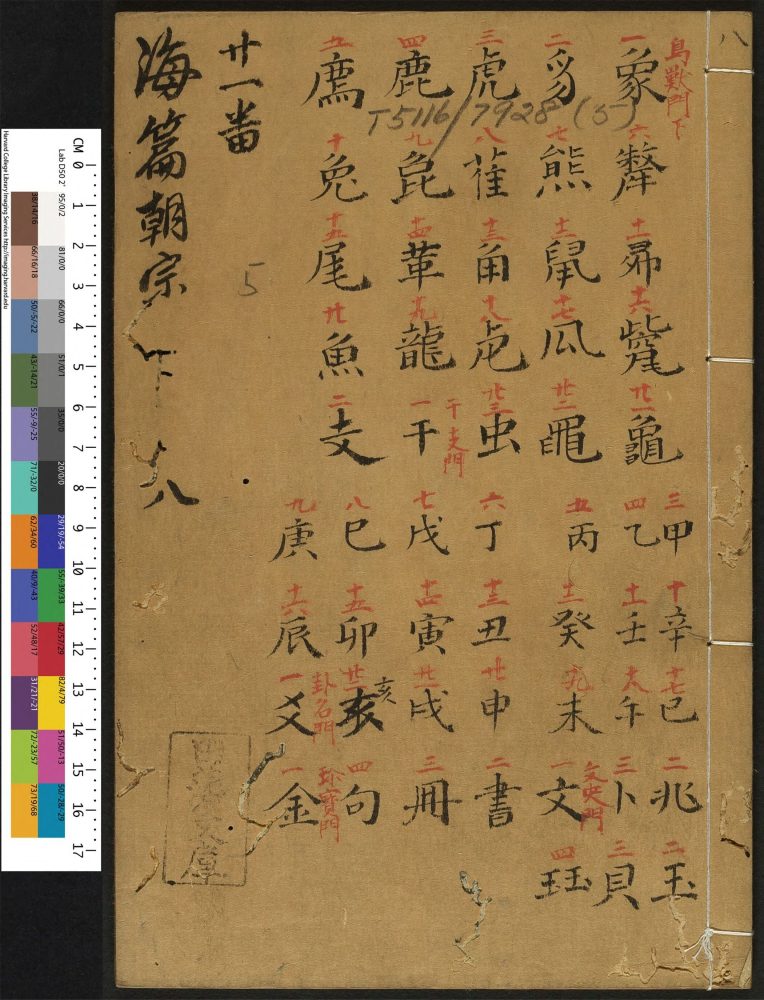 八
鳥獸門下
一象 二豸 三虎 四鹿 五廌
六犛 七熊 八萑 九㲋 十兔
十一 十二鼠 十三角 十四革 十五尾
十六 十七瓜 十八虍 十九龍 廿魚
廿一龜 廿二黽 廿三虫 干支門 一干 二支
三甲 四乙 五丙 六丁 七戊 八巳 九庚
十辛 十一壬 十二癸 十三丑 十四寅 十五卯 十六辰
十七巳 十八午 十九未 廿申 廿一戌 廿二亥 亥 卦名門 一爻
二兆 三卜 文史門 一文 二書 三冊 四句 珍寶門 一金
二玉 三貝 四玨
T5116/7928 (5)
5
廿一番
海篇朝宗 下 八
CM 0 1 2 3 4 5 6 7 8 9 10 11 12 13 14 15 16 17
Harvard College Library Imaging Services http://imaging.harvard.edu